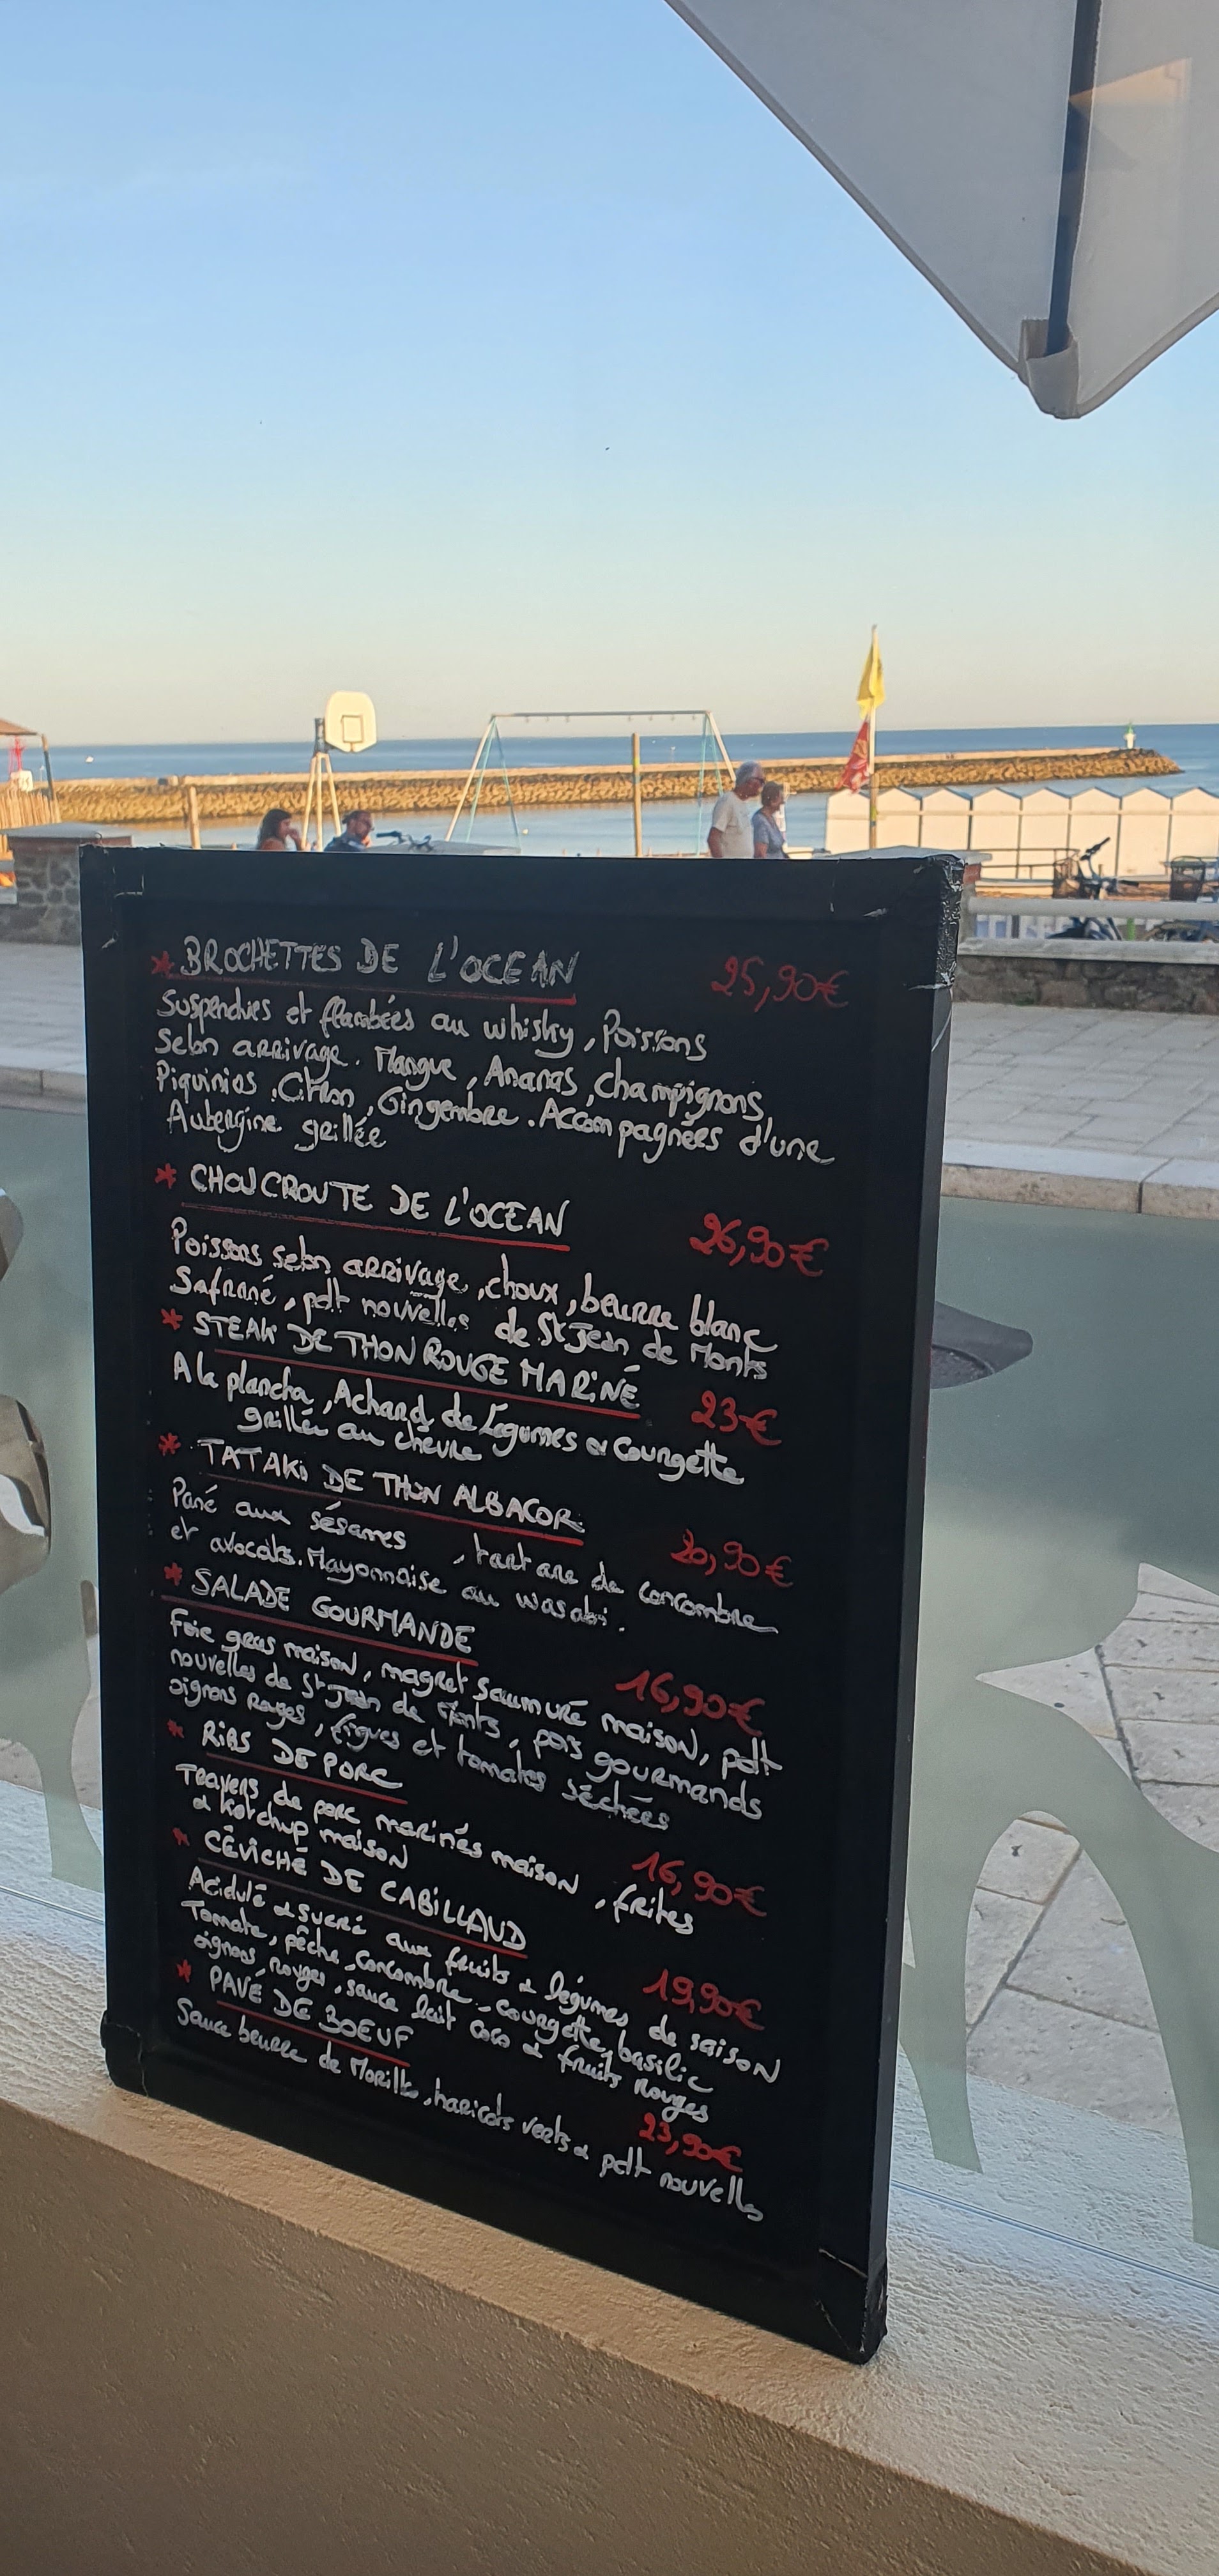 * BROCHETTES DE L'OCEAN 25,90€
Suspendues et flambées au whisky, Poissons
selon arrivage. Mangue, Ananas, champignons,
Piquinios, Citron, Gingembre. Accompagnées d'une
Aubergine grillée
* CHOUCROUTE DE L'OCEAN 26,90€
Poissons selon arrivage, choux, beurre blanc
Safrané, pdt nouvelles de St Jean de Monts
* STEAK DE THON ROUGE MARINÉ 23€
A la plancha, Achard de Légumes & Courgette
grillée au chèvre
* TATAKI DE THON ALBACOR 20,90€
Pané aux sésames, tartare de concombre
et avocats. Mayonnaise au wasabi.
* SALADE GOURMANDE 16,90€
Foie gras maison, magret saumuré maison, pdt
nouvelles de St Jean de Monts, pois gourmands
oignons rouges, figues et tomates séchées
* RIBS DE PORC 16,90€
Travers de porc marinés maison, frites
& Ketchup maison
* CÉVICHÉ DE CABILLAUD 19,90€
Acidulé & sucré aux fruits & légumes de saison
Tomate, pêche, concombre, courgette, basilic
oignons rouges, sauce lait coco & fruits rouges
* PAVÉ DE BOEUF 23,90€
Sauce beurre de Morilles, haricots verts & pdt nouvelles